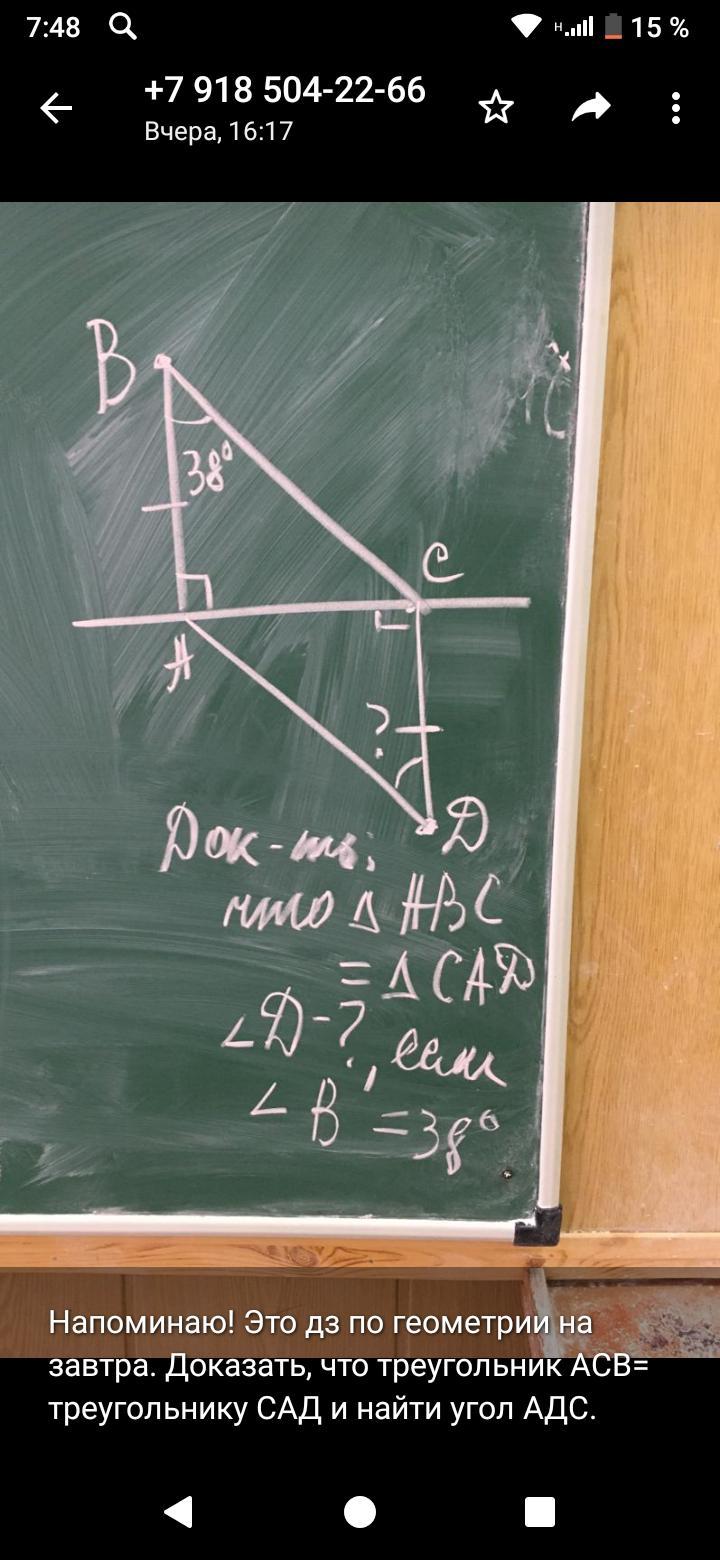 7:48
H
15 %
+7 918 504-22-66
Вчера, 16:17
B
38°
C
A
?
D
Док-ть:
что Δ ABC
= Δ CAD
∠D-?, если
∠ B = 38°
Напоминаю! Это дз по геометрии на
завтра. Доказать, что треугольник АСВ=
треугольнику САД и найти угол АДС.